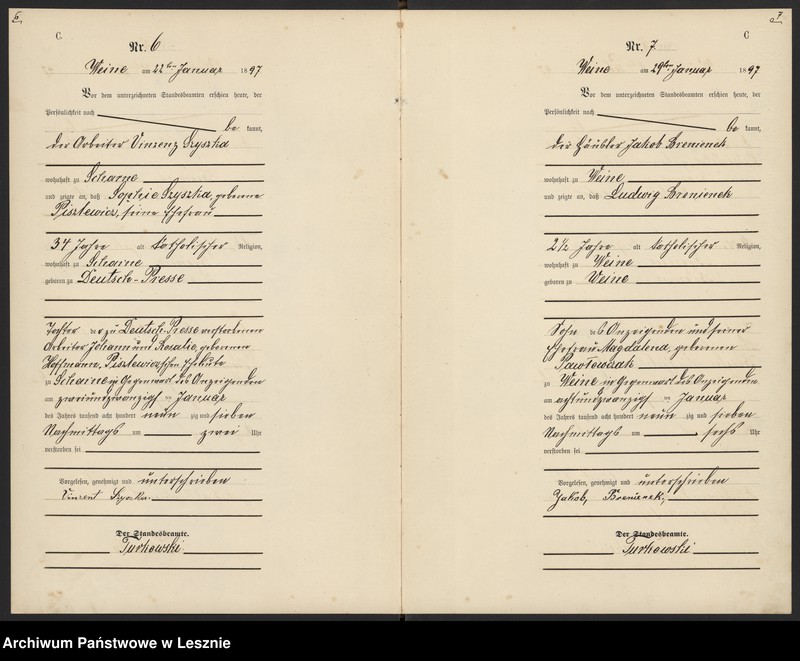 6
C.
Nr. 6
Weine am 22ten Januar 1897
Vor dem unterzeichneten Standesbeamten erschien heute, der
Persönlichkeit nach
be kannt,
der Arbeiter Vinzenz Szyszka
wohnhaft zu Scharne
und zeigte an, daß Sophie Szyszka, geborene
Pisztewicz, seine Ehefrau
34 Jahre alt katholischer Religion,
wohnhaft zu Scharne
geboren zu Deutsch-Presse
Tochter der zu Deutsch-Presse verstorbenen
Arbeiter Johann und Rosalie, geborenen
Hoffmann, Pisztewicz'schen Eheleute
zu Scharne in Gegenwart des Anzeigenden
am zweiundzwanzigsten Januar
des Jahres tausend acht hundert neun zig und sieben
Nachmittags um zwei Uhr
verstorben sei
Vorgelesen, genehmigt und unterschrieben
Vinzent
Der Standesbeamte.
Turkowski
7
C
Nr. 7
Weine am 29ten Januar 1897
Vor dem unterzeichneten Standesbeamten erschien heute, der
Persönlichkeit nach
be kannt,
der Häusler Jakob Brenienek
wohnhaft zu Weine
und zeigte an, daß Ludwig Brenienek
2½ Jahre alt katholischer Religion,
wohnhaft zu Weine
geboren zu Weine
Sohn des Anzeigenden und seiner
Ehefrau Magdalena, geborenen
Pawłowczak
zu Weine in Gegenwart des Anzeigenden
am achtundzwanzigsten Januar
des Jahres tausend acht hundert neun zig und sieben
Nachmittags um sechs Uhr
verstorben sei
Vorgelesen, genehmigt und unterschrieben
Jakob, Brenienek,
Der Standesbeamte.
Turkowski
Archiwum Państwowe w Lesznie